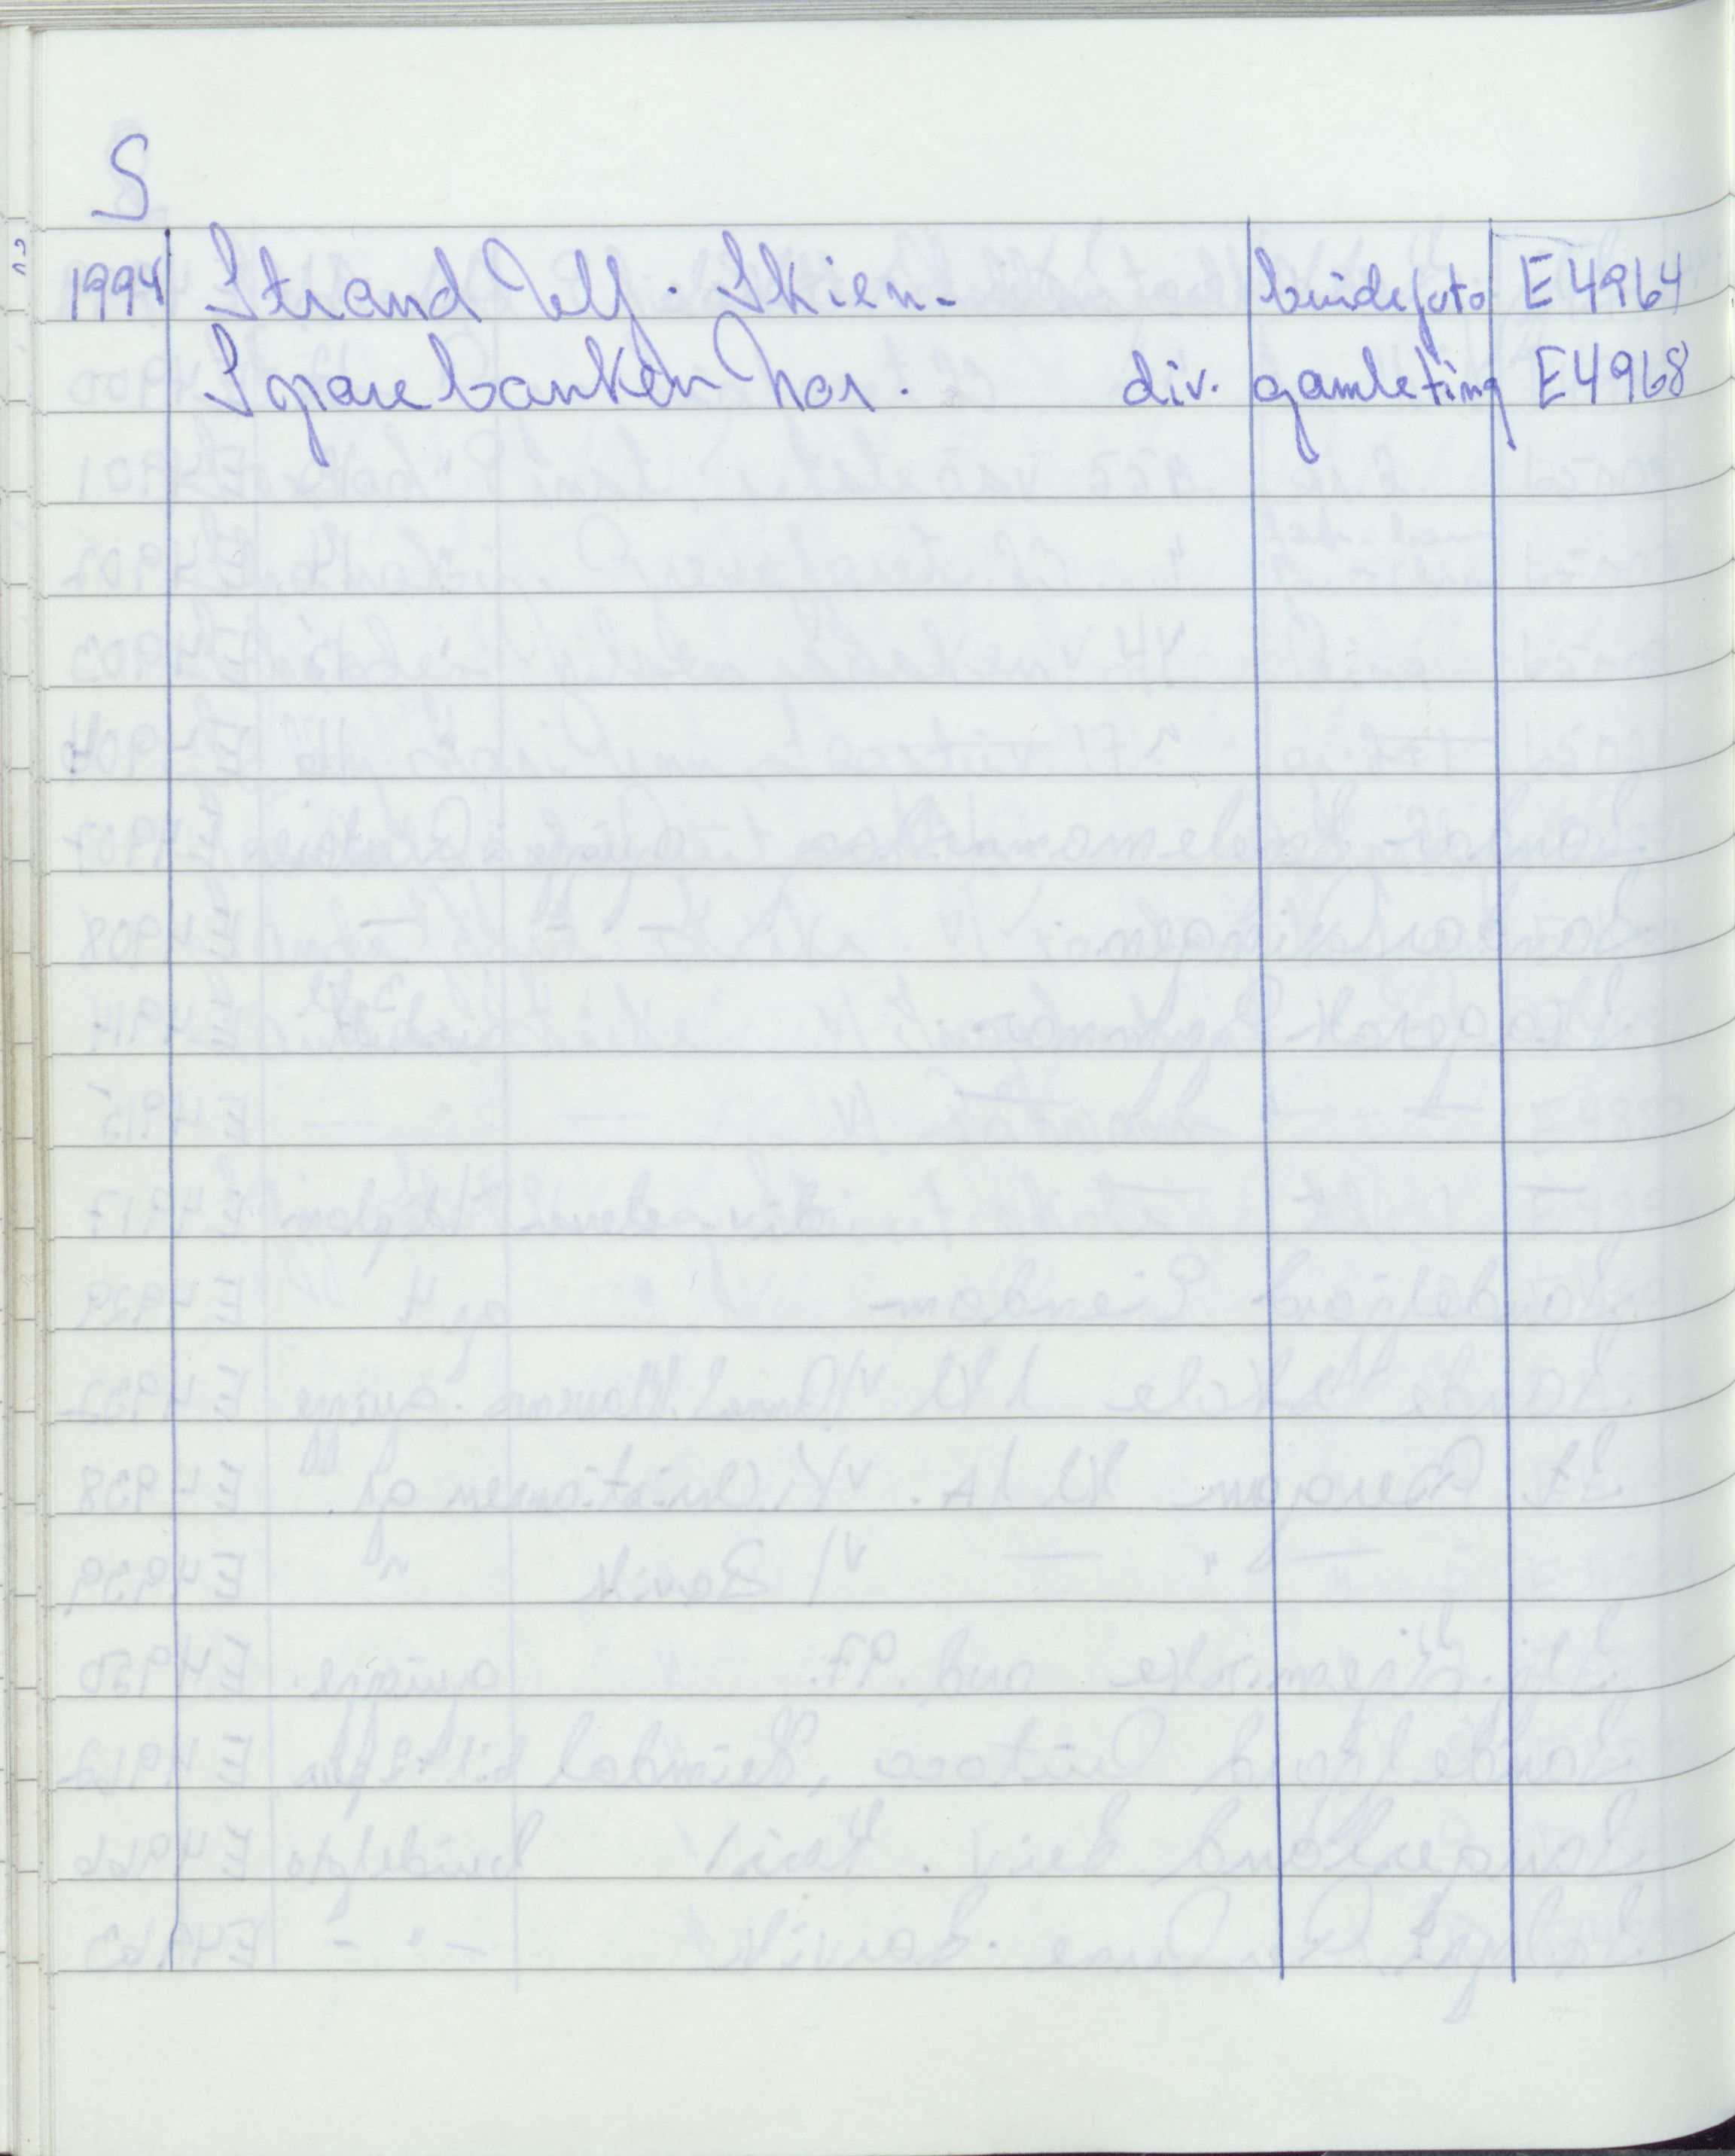 S
1994 Strand Ulf. Skien. brudefoto E4964
Sparebanken Nor. div. gamle ting E4968